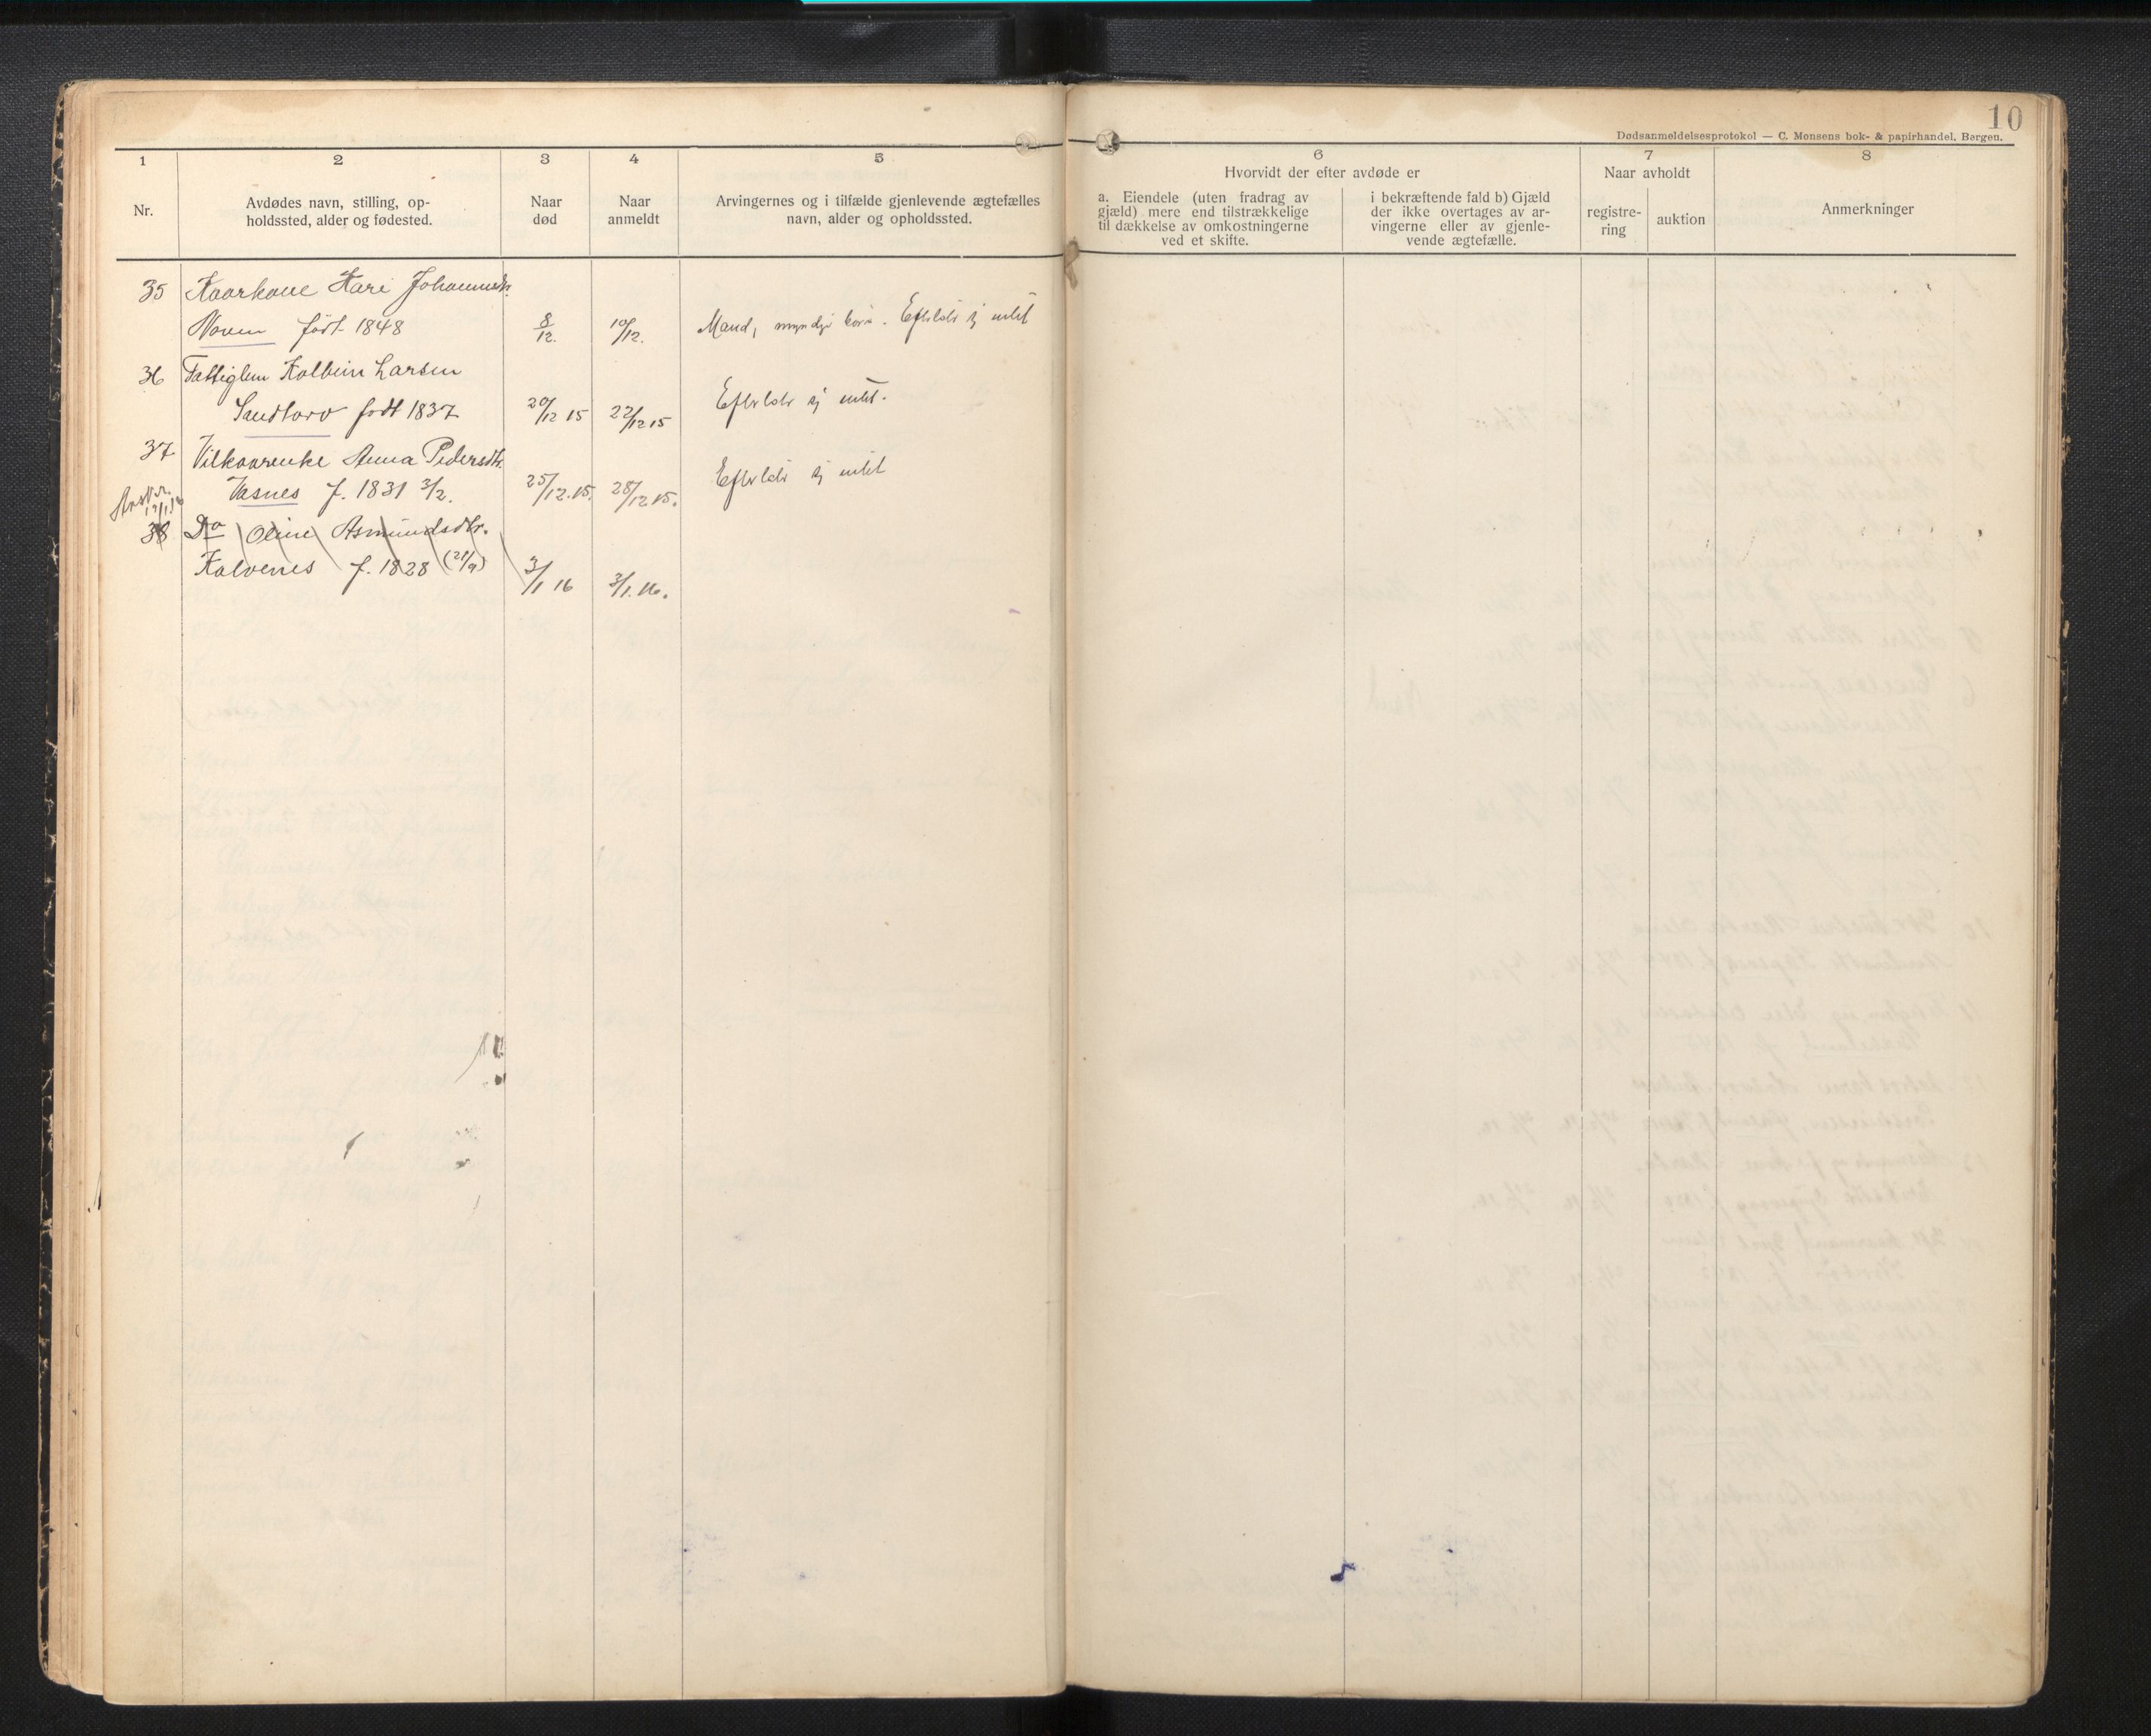 10
Dødsanmeldelsesprotokol — C. Monsens bok- & papirhandel, Bergen.
1
2
3
4
5
6
7
8
Nr.
Avdødes navn, stilling, op-
holdssted, alder og fødested.
Naar
død
Naar
anmeldt
Arvingernes og i tilfælde gjenlevende ægtefælles
navn, alder og opholdssted.
Hvorvidt der efter avdøde er
a. Eiendele (uten fradrag av
gjæld) mere end tilstrækkelige
til dækkelse av omkostningerne
ved et skifte.
i bekræftende fald b) Gjæld
der ikke overtages av ar-
vingerne eller av gjenle-
vende ægtefælle.
Naar avholdt
registre-
ring
auktion
Anmerkninger
35 Kaarkone Kari Johannesdtr.
født 1848 8/12. 10/12. Mand, myndige børn. Efterlod ej intet
36 Fattiglem Kolbein Larsen
Sandtorv født 1837 20/12 15 22/12 15 Efterlod ej intet.
37 Vilkaarenke Anna Pedersdtr.
Vasnes f. 1831 3/2. 25/12.15. 28/12 15. Efterlod ej intet
38 Do Oline Asmundsdtr.
Kalvenes f. 1828 (21/9) 3/1 16 3/1.16.